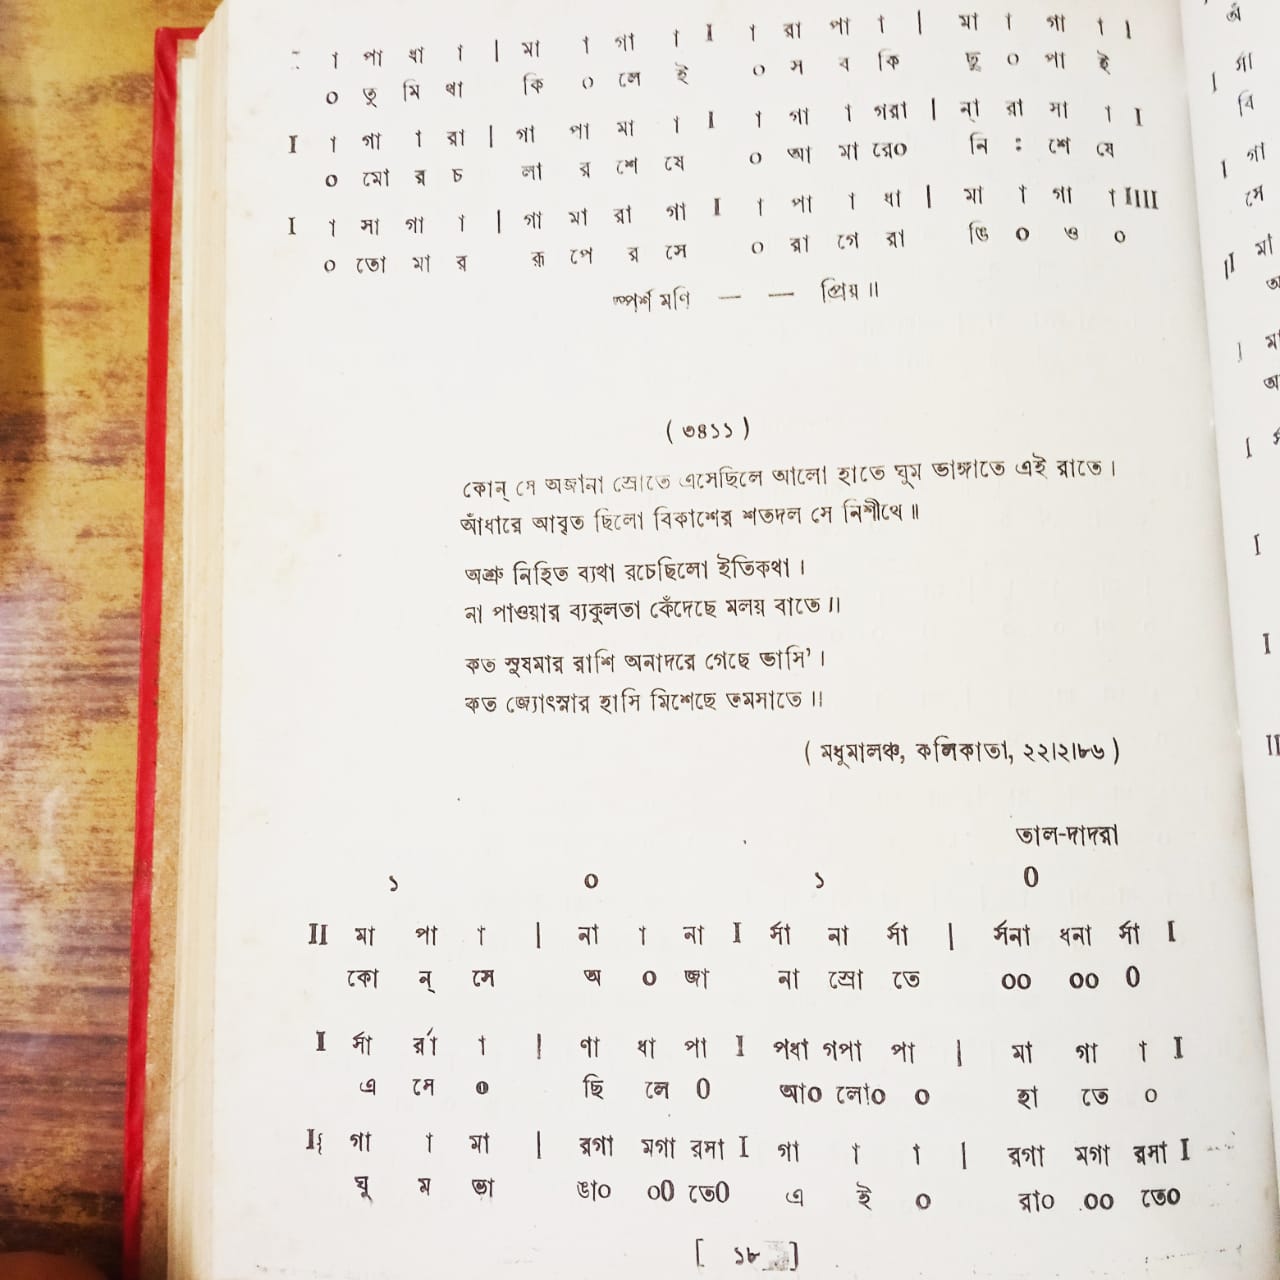 । পা ধা । | মা । গা । I । রা পা । | মা । গা । I
০ তু মি থা কি ০ লে ই ০ স ব কি ছু ০ পা ই
I । গা । রা | গা পা মা । I । গা । গরা | ন্া রা সা । I
০ মো র চ লা র শে ষে ০ আ মা রে০ নি ঃ শে ষে
I । সা গা । | গা মা রা গা I । পা । ধা | মা । গা । IIII
০ তো মা র রূ পে র সে ০ রা গে রা ঙি ০ ও ০
স্পর্শ মণি — — প্রিয় ॥
( ৩৪১১ )
কোন্ সে অজানা স্রোতে এসেছিলে আলো হাতে ঘুম ভাঙ্গাতে এই রাতে ।
আঁধারে আবৃত ছিলো বিকাশের শতদল সে নিশীথে ॥
অশ্রু নিহিত ব্যথা রচেছিলো ইতিকথা ।
না পাওয়ার ব্যকুলতা কেঁদেছে মলয় বাতে ॥
কত সুষমার রাশি অনাদরে গেছে ভাসি' ।
কত জ্যোৎস্নার হাসি মিশেছে তমসাতে ॥
( মধুমালঞ্চ, কলিকাতা, ২২।২।৮৬ )
তাল-দাদরা
১ ০ ১ ০
II মা পা । | না । না I র্সা না র্সা | র্সনা ধনা র্সা I
কো ন্ সে অ ০ জা না স্রো তে ০০ ০০ ০
I র্সা র্রা । | ণা ধা পা I পধা গপা পা | মা গা । I
এ সে ০ ছি লে ০ আ০ লো০ ০ হা তে ০
I{ গা । মা | রগা মগা রসা I গা । । | রগা মগা রসা I
ঘু ম ভা ঙা০ ০০ তে০ এ ই ০ রা০ ০০ তে০
[ ১৮ ]